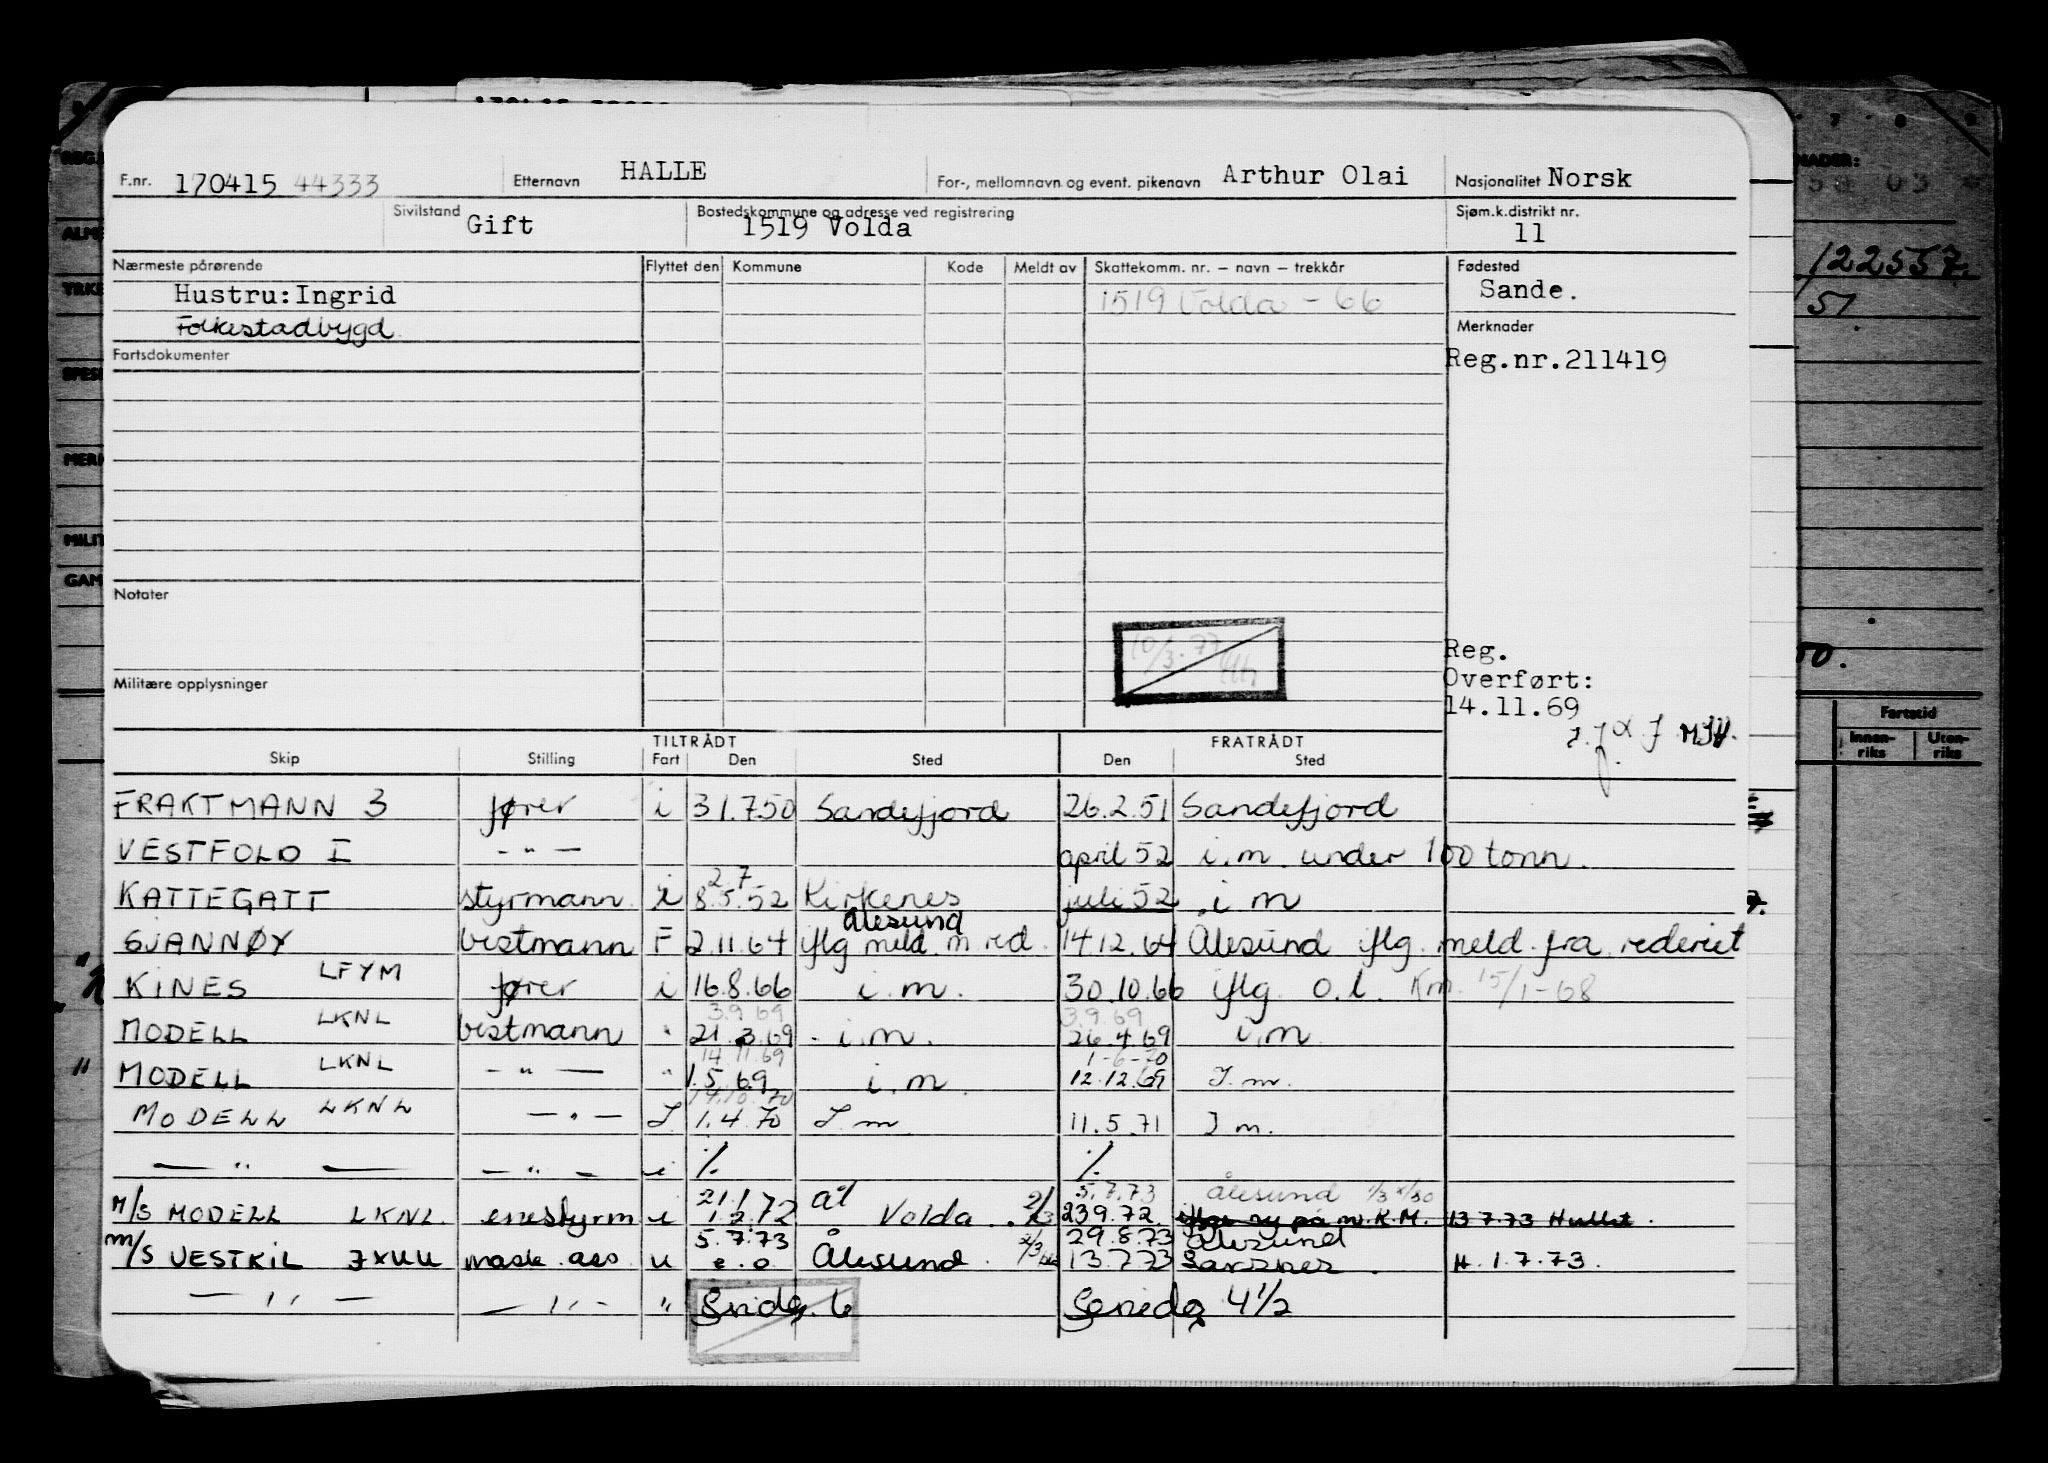 F.nr. 170415 44333 Etternavn HALLE For-, mellomnavn og event. pikenavn Arthur Olai Nasjonalitet Norsk
Sivilstand Gift Bostedskommune og adresse ved registrering 1519 Volda Sjøm.k.distrikt nr. 11
Nærmeste pårørende Flyttet den Kommune Kode Meldt av Skattekomm. nr. – navn – trekkår Fødested
Hustru:Ingrid 1519 Volda - 66 Sande.
Folkestadbygd Merknader
Fartsdokumenter Reg.nr.211419
Notater
10/3.77
Reg.
Militære opplysninger Overført:
14.11.69
TILTRÅDT FRATRÅDT
Skip Stilling Fart Den Sted Den Sted
FRAKTMANN 3 fører i 31.7.50 Sandefjord 26.2.51 Sandefjord
VESTFOLD I - " - april 52 i.m. under 100 tonn.
2.7
KATTEGATT styrmann i 8.5.52 Kirkenes juli 52 i m
Ålesund
GJANNØY bestmann F 2.11.64 iflg meld. m red. 14.12.64 Ålesund iflg. meld. fra rederiet
KINES LFYM fører i 16.8.66 i.m. 30.10.66 iflg o.l. Km. 15/1-68
3.9.69 3.9.69
MODELL LKNL bestmann " 21.3.69 i.m. 26.4.69 i.m
14.11.69 1-6-70
MODELL LKNL - " - " 1.5.69 i.m 12.12.69 I.m.
14.10.70
MODELL LKNL - " - I 1.4.70 I.m 11.5.71 I m.
- " - - " - i % %
21.1.72 5.7.73 Ålesund
M/S MODELL LKNL. enestyrm i 1.2.72 Volda 2/3 23.9.72. iflge ny på m.K.M. 13.7.73 Hullet.
5.7.73 29.8.73 Ålesund
M/S VESTKIL JXUU mask. ass u e.o. Ålesund 2/3 13.7.73 H. 1.7.73.
- " - - " - " 6 4 1/2
122557.
51.
Fartstid
Innen-riks Uten-riks